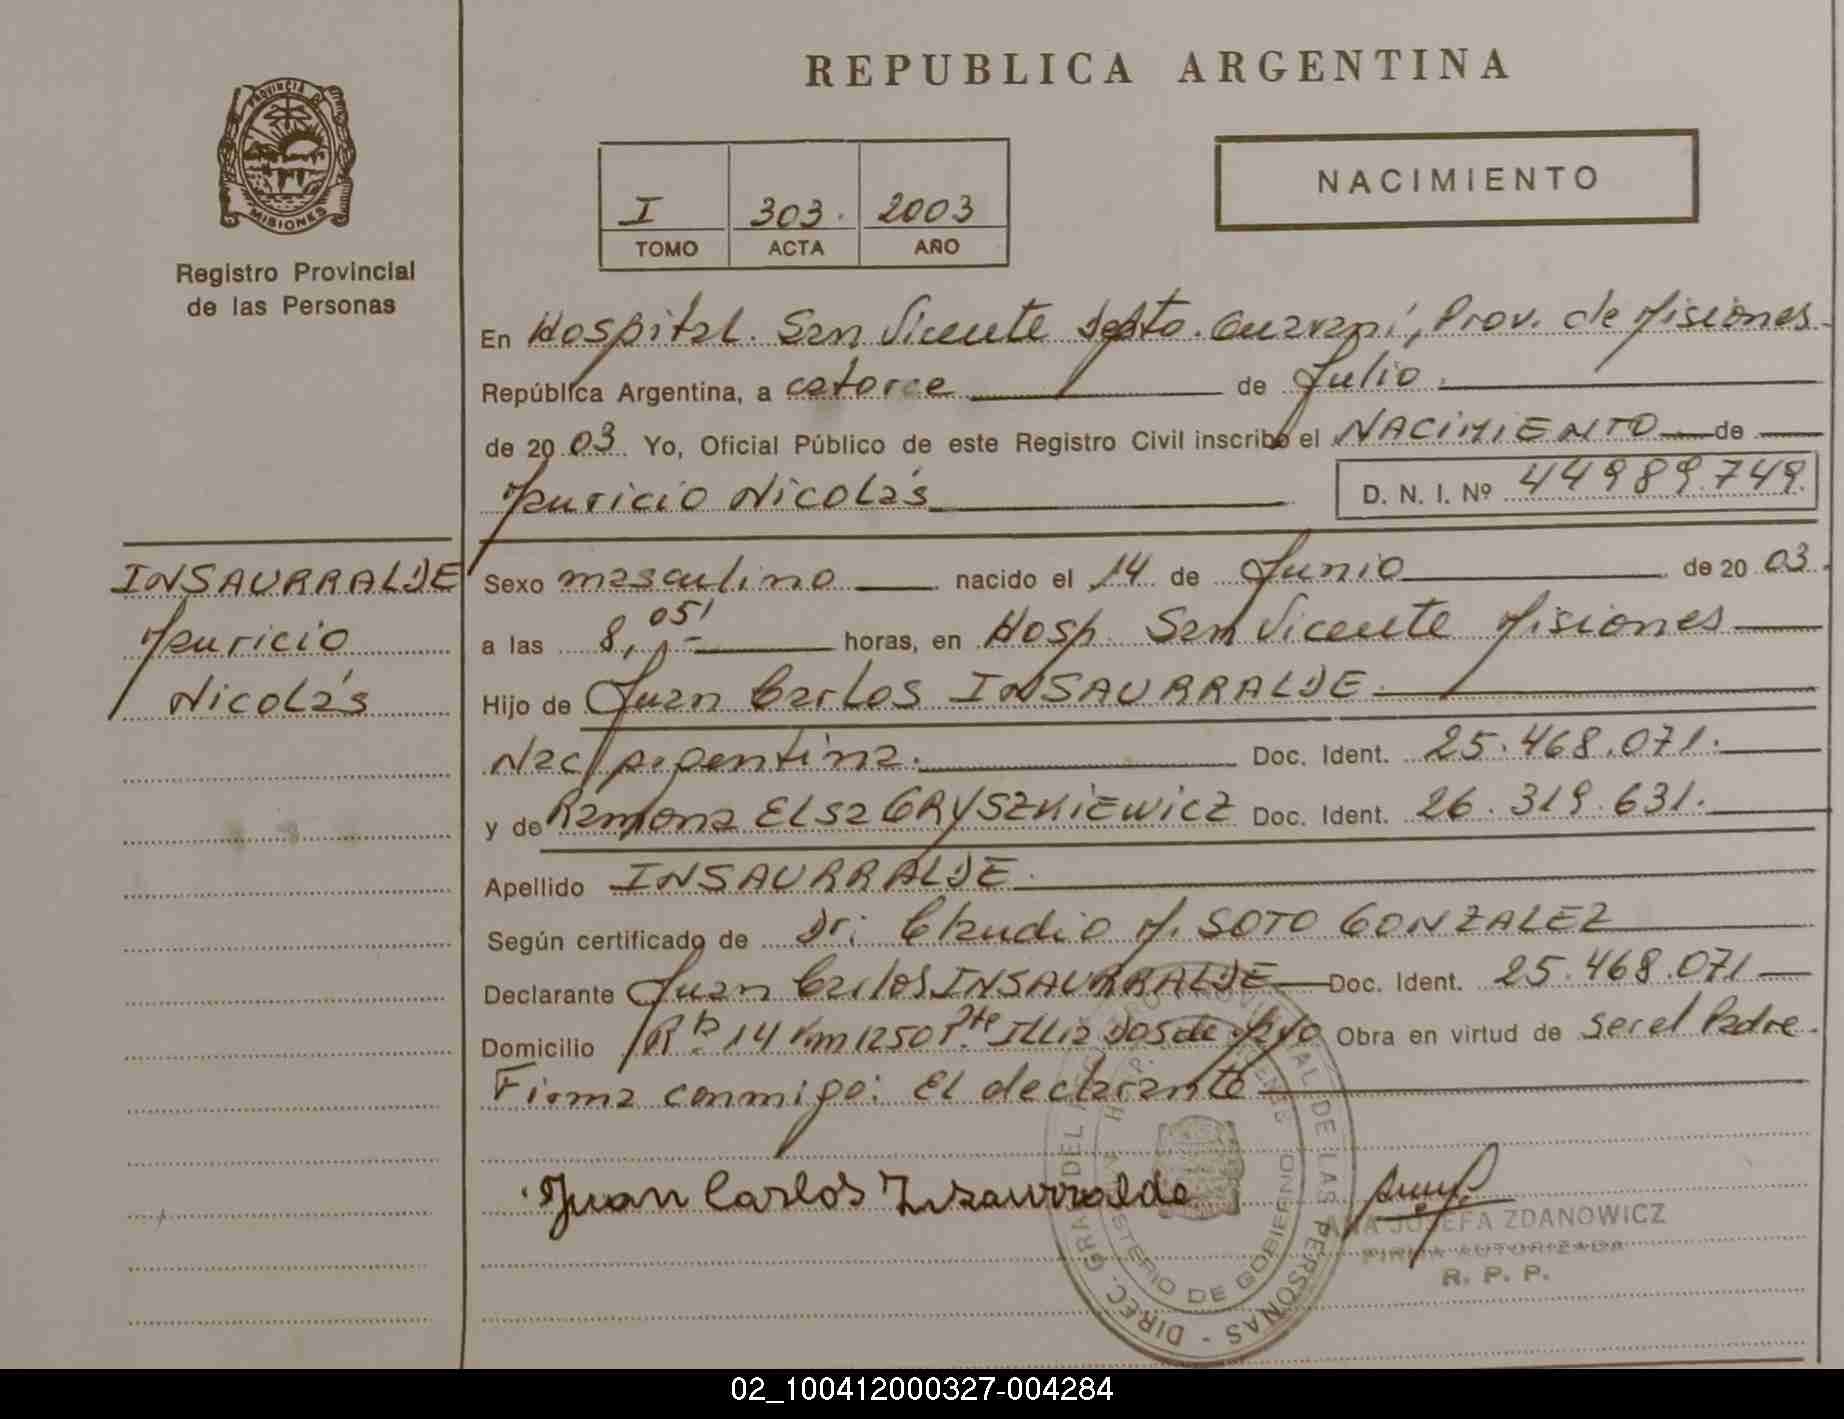 REPUBLICA ARGENTINA
PROVINCIA DE MISIONES
Registro Provincial
de las Personas
I 303. 2003
TOMO ACTA AÑO
NACIMIENTO
En Hospital. San Vicente Depto. Guaraní, Prov. de Misiones.
República Argentina, a catorce de Julio.
de 2003. Yo, Oficial Público de este Registro Civil inscribo el NACIMIENTO de
Mauricio Nicolás D. N. I. Nº 44989.749.
INSAURRALDE
Mauricio
Nicolás
Sexo masculino nacido el 14 de Junio de 2003.
a las 8,05' horas, en Hosp. San Vicente Misiones
Hijo de Juan Carlos INSAURRALDE.
Nac/ Argentina. Doc. Ident. 25.468.071.
y de Ramona Elsa GRYSZKIEWICZ Doc. Ident. 26.319.631.
Apellido INSAURRALDE.
Según certificado de Dr. Claudio M. SOTO GONZALEZ
Declarante Juan Carlos INSAURRALDE Doc. Ident. 25.468.071
Domicilio Rta 14 Km 1250 Pte Illia Dos de Mayo Obra en virtud de ser el Padre.
Firma conmigo: El declarante
Juan Carlos Insaurralde
ANA JOSEFA ZDANOWICZ
FIRMA AUTORIZADA
R. P. P.
MINISTERIO DE GOBIERNO
02_100412000327-004284